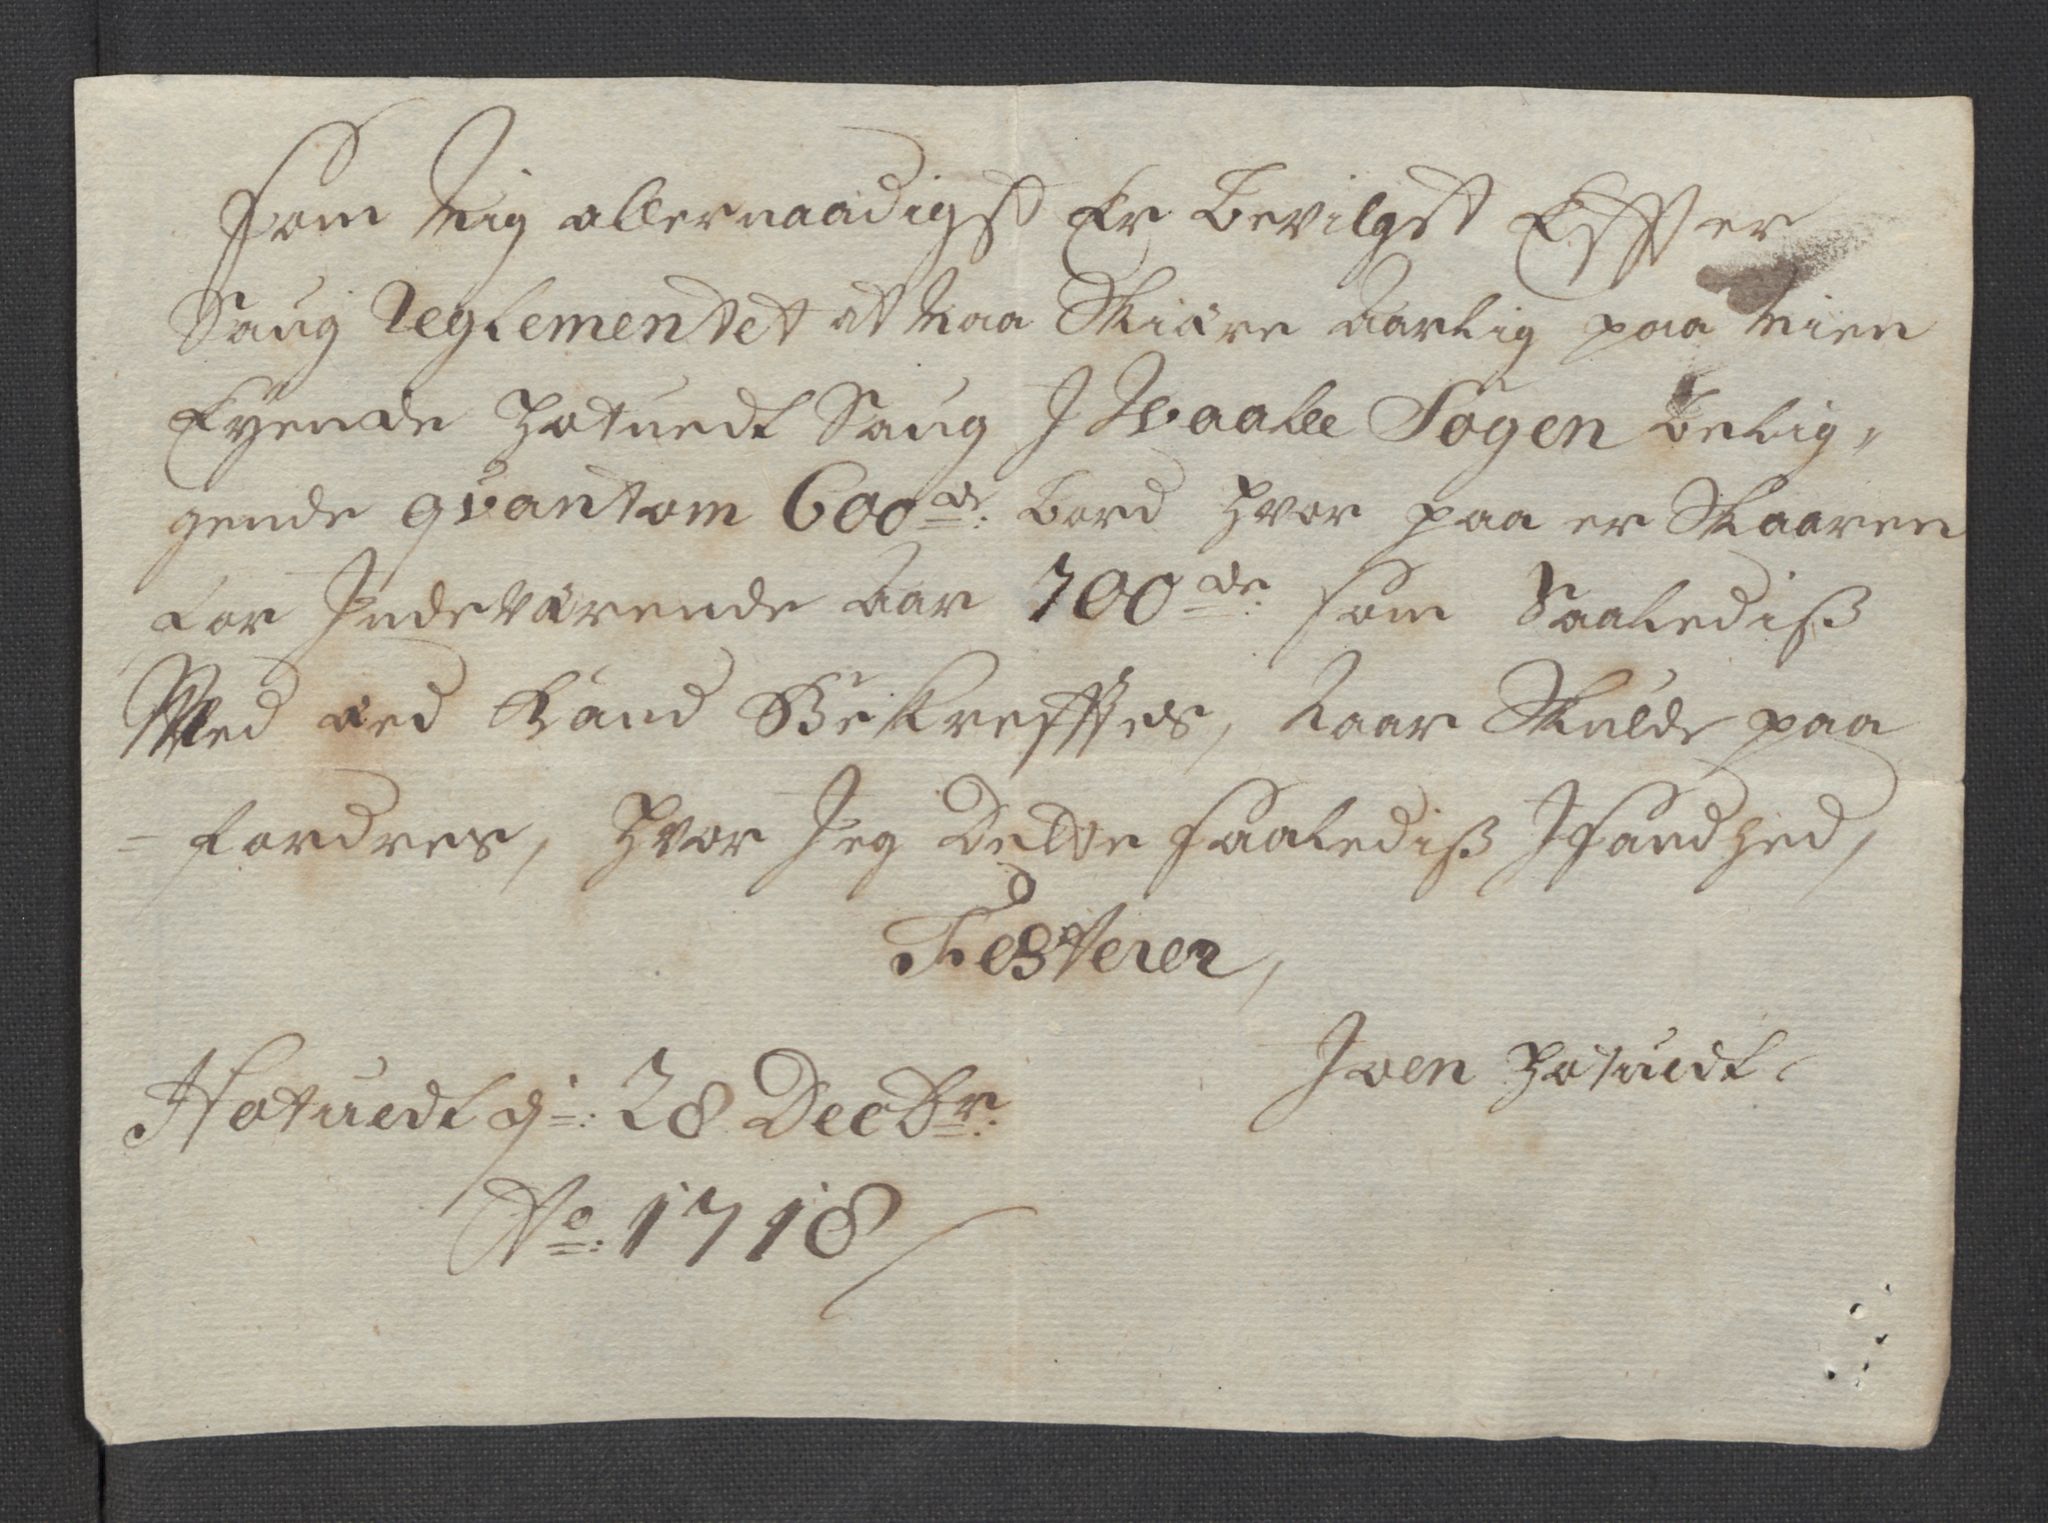 Som Mig allernaadigst Er Bevilgst Effter
Saug Reglementet at Maa Skiære Aarlig paa Mien
Eyende Hotuedt Saug J Waale Sogen Belig„
gende qvantom 600de: bord hvor paa er Skaaren
for Indeværende Aar 700de: som Saalediß
Med æed Kand Bekrefftes, Naar Skulde paa
- fordres, hvor Jeg Dette saalediß J Sandhed,
Testerer,
Joen Hotuedt
Hotuedt d: 28 Decbr:
Ao: 1718